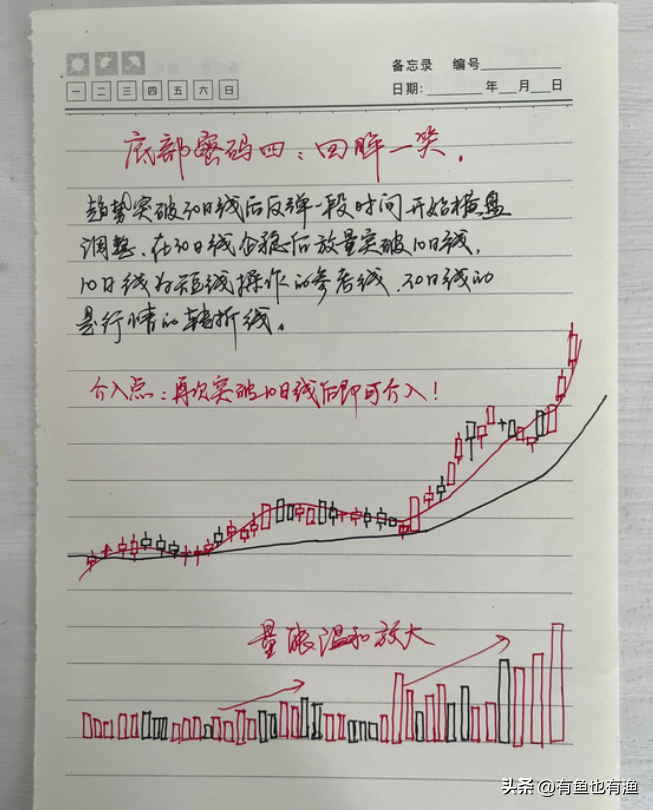 备忘录 编号
一 二 三 四 五 六 日
日期: 年 月 日
底部密码四：回眸一笑.
趋势突破30日线后反弹一段时间开始横盘
调整、在30日线企稳后放量突破10日线,
10日线为短线操作的参考线、30日线的
是行情的转折线。
介入点：再次突破10日线后即可介入！
量能温和放大
头条 @有鱼也有渔